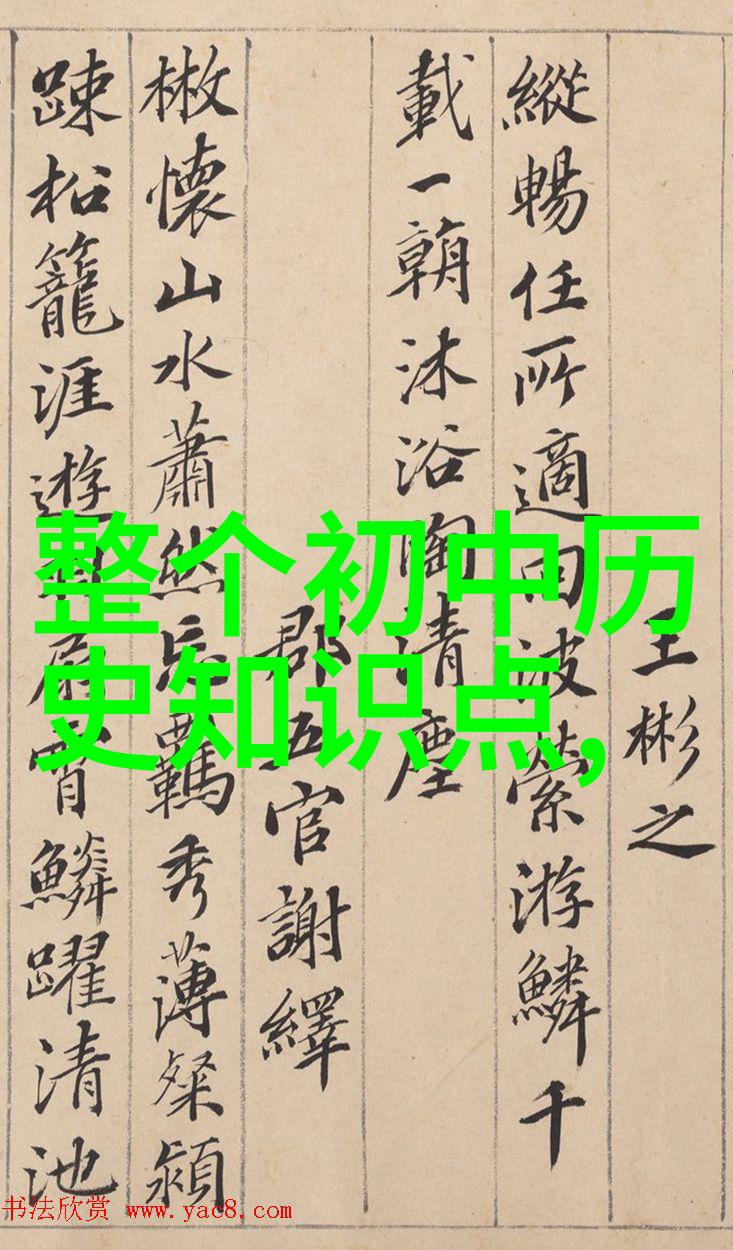 王彬之
縱暢任所適回波縈游鱗千
載一朝沐浴陶清塵
郡五官謝繹
㪚懷山水蕭然忘羈秀薄粲穎
踈松籠涯遊羽扇霄鱗躍清池
整个初中历
史知识点,
书法欣赏 www.yac8.com